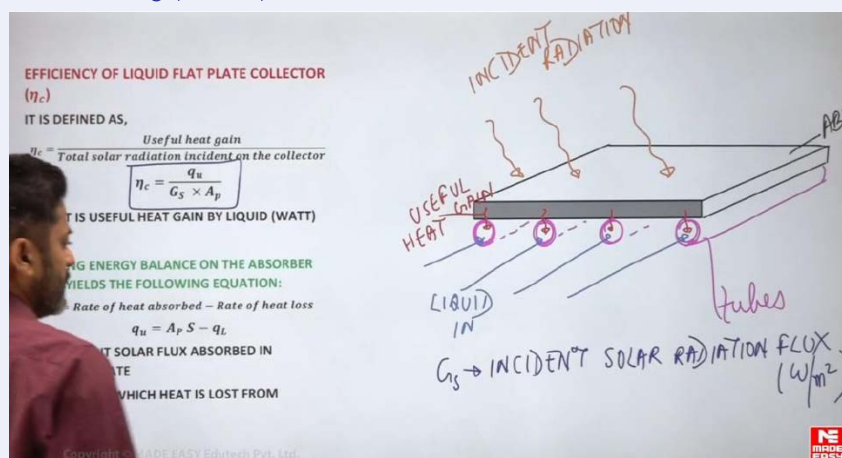 EFFICIENCY OF LIQUID FLAT PLATE COLLECTOR
(η_c)
IT IS DEFINED AS,
η_c = Useful heat gain / Total solar radiation incident on the collector
η_c = q_u / G_S × A_p
IS USEFUL HEAT GAIN BY LIQUID (WATT)
ENERGY BALANCE ON THE ABSORBER
YIELDS THE FOLLOWING EQUATION:
Rate of heat absorbed − Rate of heat loss
q_u = A_P S − q_L
SOLAR FLUX ABSORBED IN
WHICH HEAT IS LOST FROM
Copyright © MADE EASY Edutech Pvt. Ltd.
INCIDENT
RADIATION
AB
USEFUL
HEAT GAIN
LIQUID
IN
tubes
G_S → INCIDENT SOLAR RADIATION FLUX
(W/m²)
ME
MADE
EASY